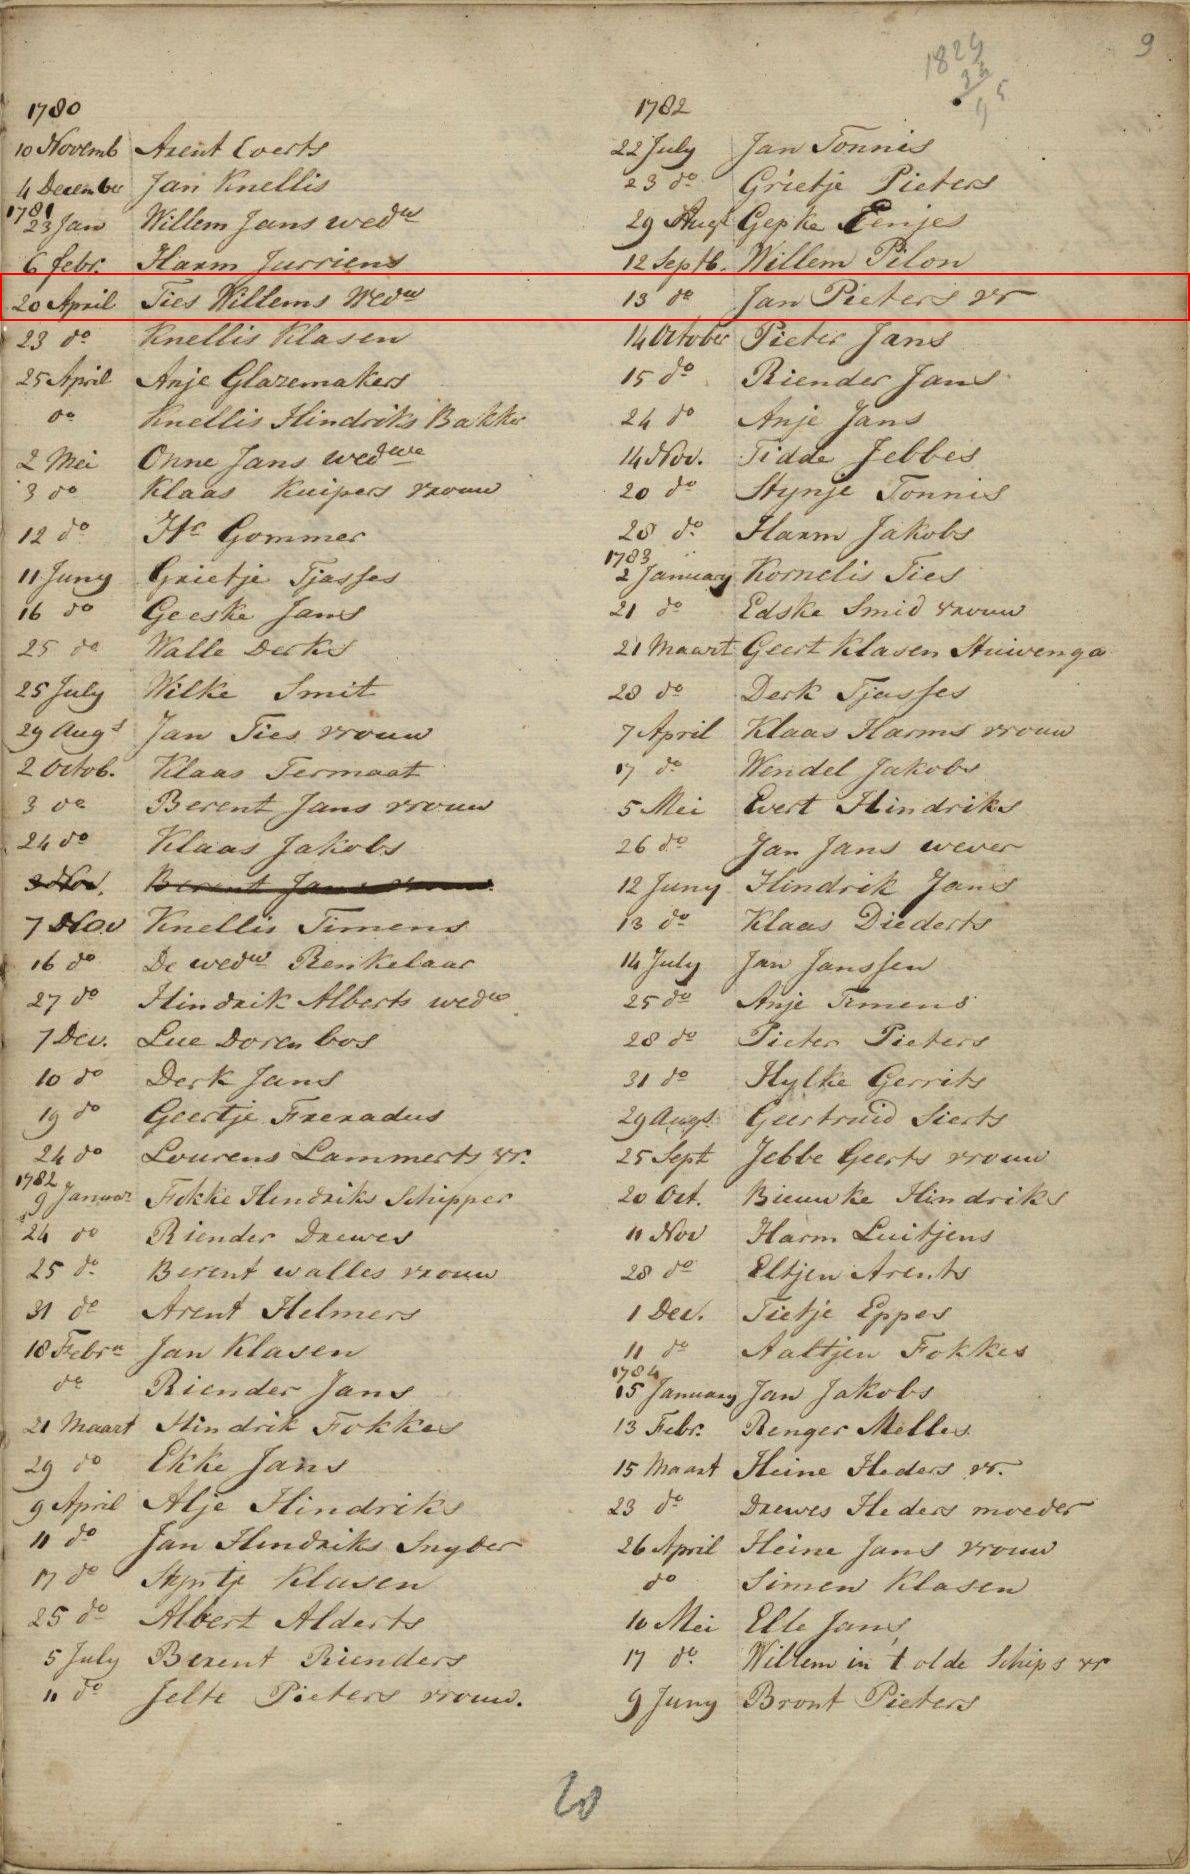 9
1824
34
95
1780
10 Novemb Arent Everts
4 December Jan Knellis
1781
23 Jan Willem Jans wedw
6 febr. Harm Jurriens
20 April Ties Willems Wedw
23 do Knellis Klasen
25 April Anje Glazemakers
do Knellis Hindriks Bakker
2 Mei Onne Jans wedwe
3 do Klaas Kuipers vrouw
12 do Hr Gommer
11 Juny Grietje Tjasses
16 do Geeske Jans
25 do Walle Derks
25 July Wilke Smit
29 Augs Jan Ties vrouw
2 Octob. Klaas Termaat
3 do Berent Jans vrouw
24 do Klaas Jakobs
3 Nov. Berent Jans vrouw
7 Nov Knellis Timens
16 do De wedw Renkelaar
27 do Hindrik Alberts wedw
7 Dec. Lue Dorenbos
10 do Derk Jans
19 do Geertje Freradus
24 do Lourens Lammerts vr.
1782
9 Januar Fokke Hindriks Schipper
24 do Riender Drewes
25 do Berent walles vrouw
31 do Arent Helmers
18 Febra Jan Klasen
do Riender Jans
21 Maart Hindrik Fokkes
29 do Ekke Jans
9 April Alje Hindriks
11 do Jan Hindriks Snyder
17 do Styntje Klasen
25 do Albert Alderts
5 July Berent Rienders
11 do Jelte Pieters vrouw.
1782
22 July Jan Tonnis
23 do Grietje Pieters
29 Augt Gepke Eenjes
12 Septb. Willem Pilon
13 do Jan Pieters vr
14 October Pieter Jans
15 do Riender Jans
24 do Anje Jans
14 Nov. Tidde Jebbes
20 do Stynje Tonnis
28 do Harm Jakobs
1783
2 January Kornelis Ties
21 do Edske Smid vrouw
21 Maart Geert Klasen Huivenga
28 do Derk Tjasses
7 April Klaas Harms vrouw
17 do Wendel Jakobs
5 Mei Evert Hindriks
26 do Jan Jans wever
12 Juny Hindrik Jans
13 do Klaas Diederts
14 July Jan Janssen
25 do Anje Timens
28 do Pieter Pieters
31 do Hylke Gerrits
29 Augs. Geertruid Sierts
25 Sept Jebbe Geerts vrouw
20 Oct. Bieuwke Hindriks
11 Nov Harm Luitjens
28 do Eltjen Arents
1 Dec. Tietje Eppes
11 do Aaltjen Fokkes
1784
15 January Jan Jakobs
13 Febr. Renger Melles
15 Maart Heine Heders vr.
23 do Drewes Heders moeder
26 April Heine Jans vrouw
do Simen Klasen
10 Mei Elle Jans
17 do Willem in 't olde Schips vr
9 Juny Bront Pieters
20